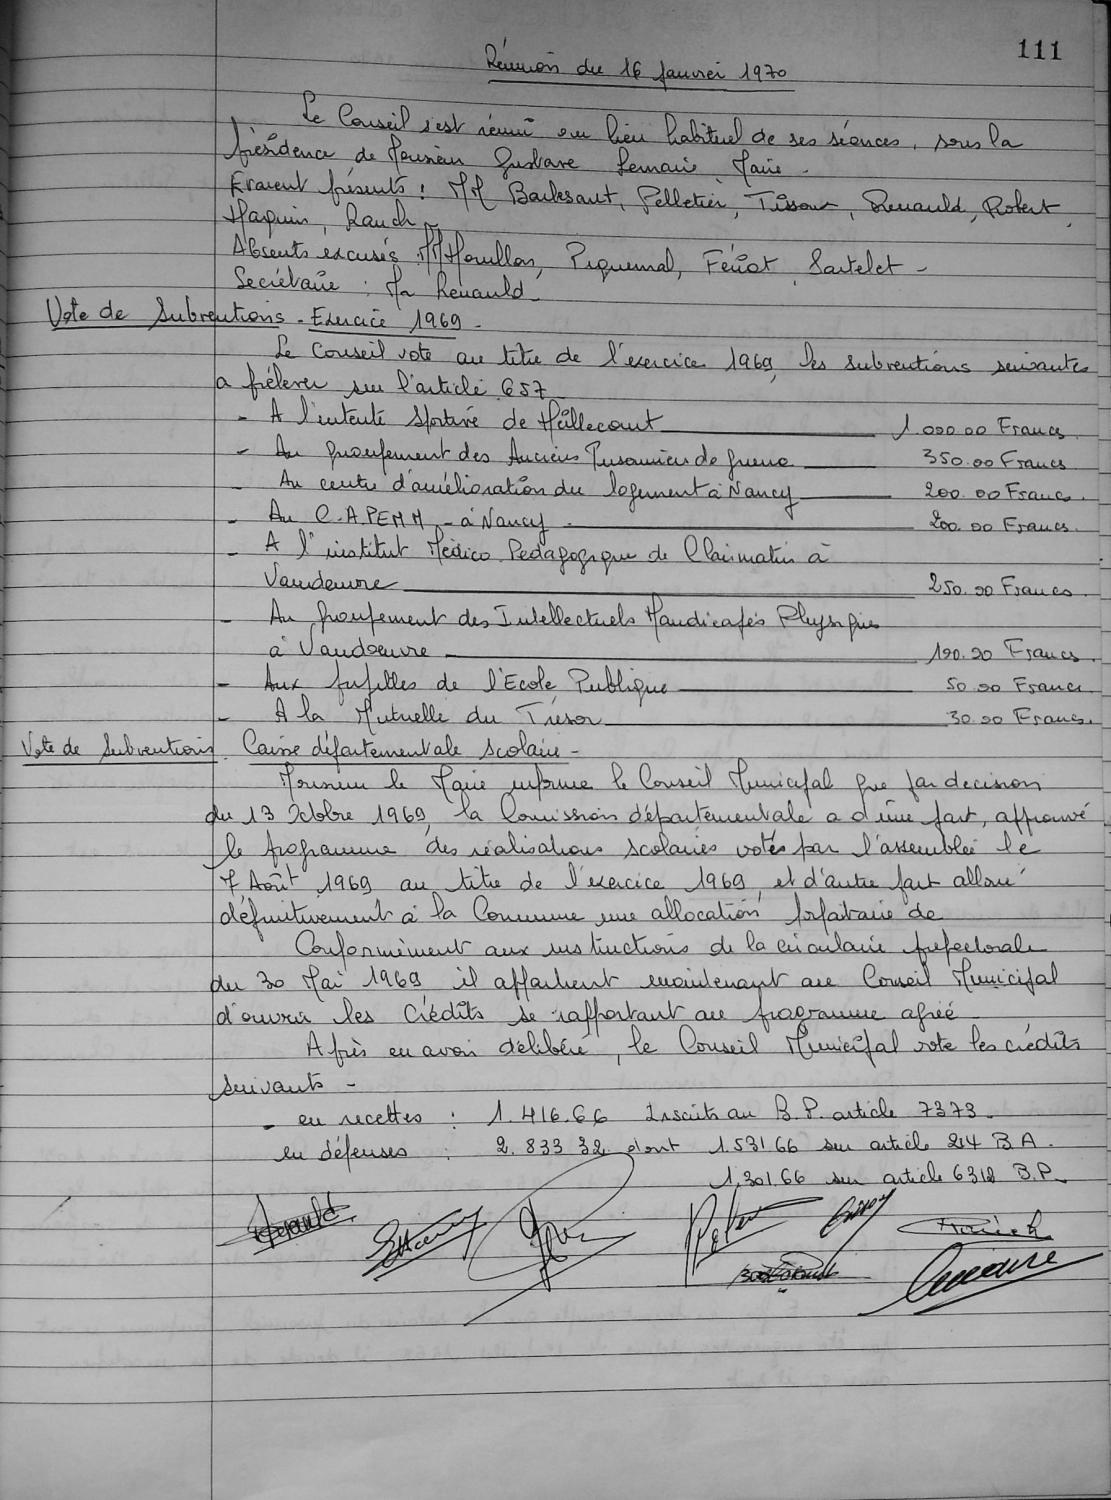 111
Réunion du 16 Janvier 1970
Le Conseil s'est réuni au lieu habituel de ses séances, sous la
présidence de Monsieur Gustave Lemaire, Maire -
Etaient présents : MM Barbesant, Pelletier, Tissour, Renauld, Robert,
Haquin, Rauch -
Absents excusés : MM Houillon, Piquemal, Fériot, Sartelet -
Secrétaire : Mr Renauld -
Vote de Subventions - Exercice 1969 -
Le Conseil vote au titre de l'exercice 1969, les subventions suivantes
a prélever sur l'article 657
- A l'entente Sportive de Heillecourt 1.000.00 Francs
- Au groupement des Anciens Prisonniers de guerre 350.00 Francs
- Au centre d'amélioration du logement à Nancy 200.00 Francs.
- Au C.A.PEMM - à Nancy - 200.00 Francs.
- A l'institut Médico Pédagogique de Clairmatin à
Vandoeuvre 250.00 Francs.
- Au groupement des Intellectuels Handicapés Physiques
à Vandoeuvre 100.00 Francs.
- Aux pupilles de l'Ecole Publique 50.00 Francs
- A la Mutuelle du Trésor 30.00 Francs.
Vote de Subventions Caisse départementale scolaire -
Monsieur le Maire informe le Conseil Municipal que par decision
du 13 Octobre 1969, la Commission départementale a d'une part, approuvé
le programme des réalisations scolaires votés par l'assemblée le
7 Août 1969 au titre de l'exercice 1969, et d'autre part alloué
définitivement à la Commune une allocation forfaitaire de
Conformément aux instructions de la circulaire préfectorale
du 30 Mai 1969 il appartient maintenant au Conseil Municipal
d'ouvrir les Crédits se rapportant au programme agréé -
Après en avoir délibéré, le Conseil Municipal vote les crédits
suivants -
- en recettes : 1.416.66 Inscrits au B.P. article 7373 -
en dépenses : 2.833 32 dont 1.531 66 sur article 214 B A -
1.301.66 sur article 6312 B.P.